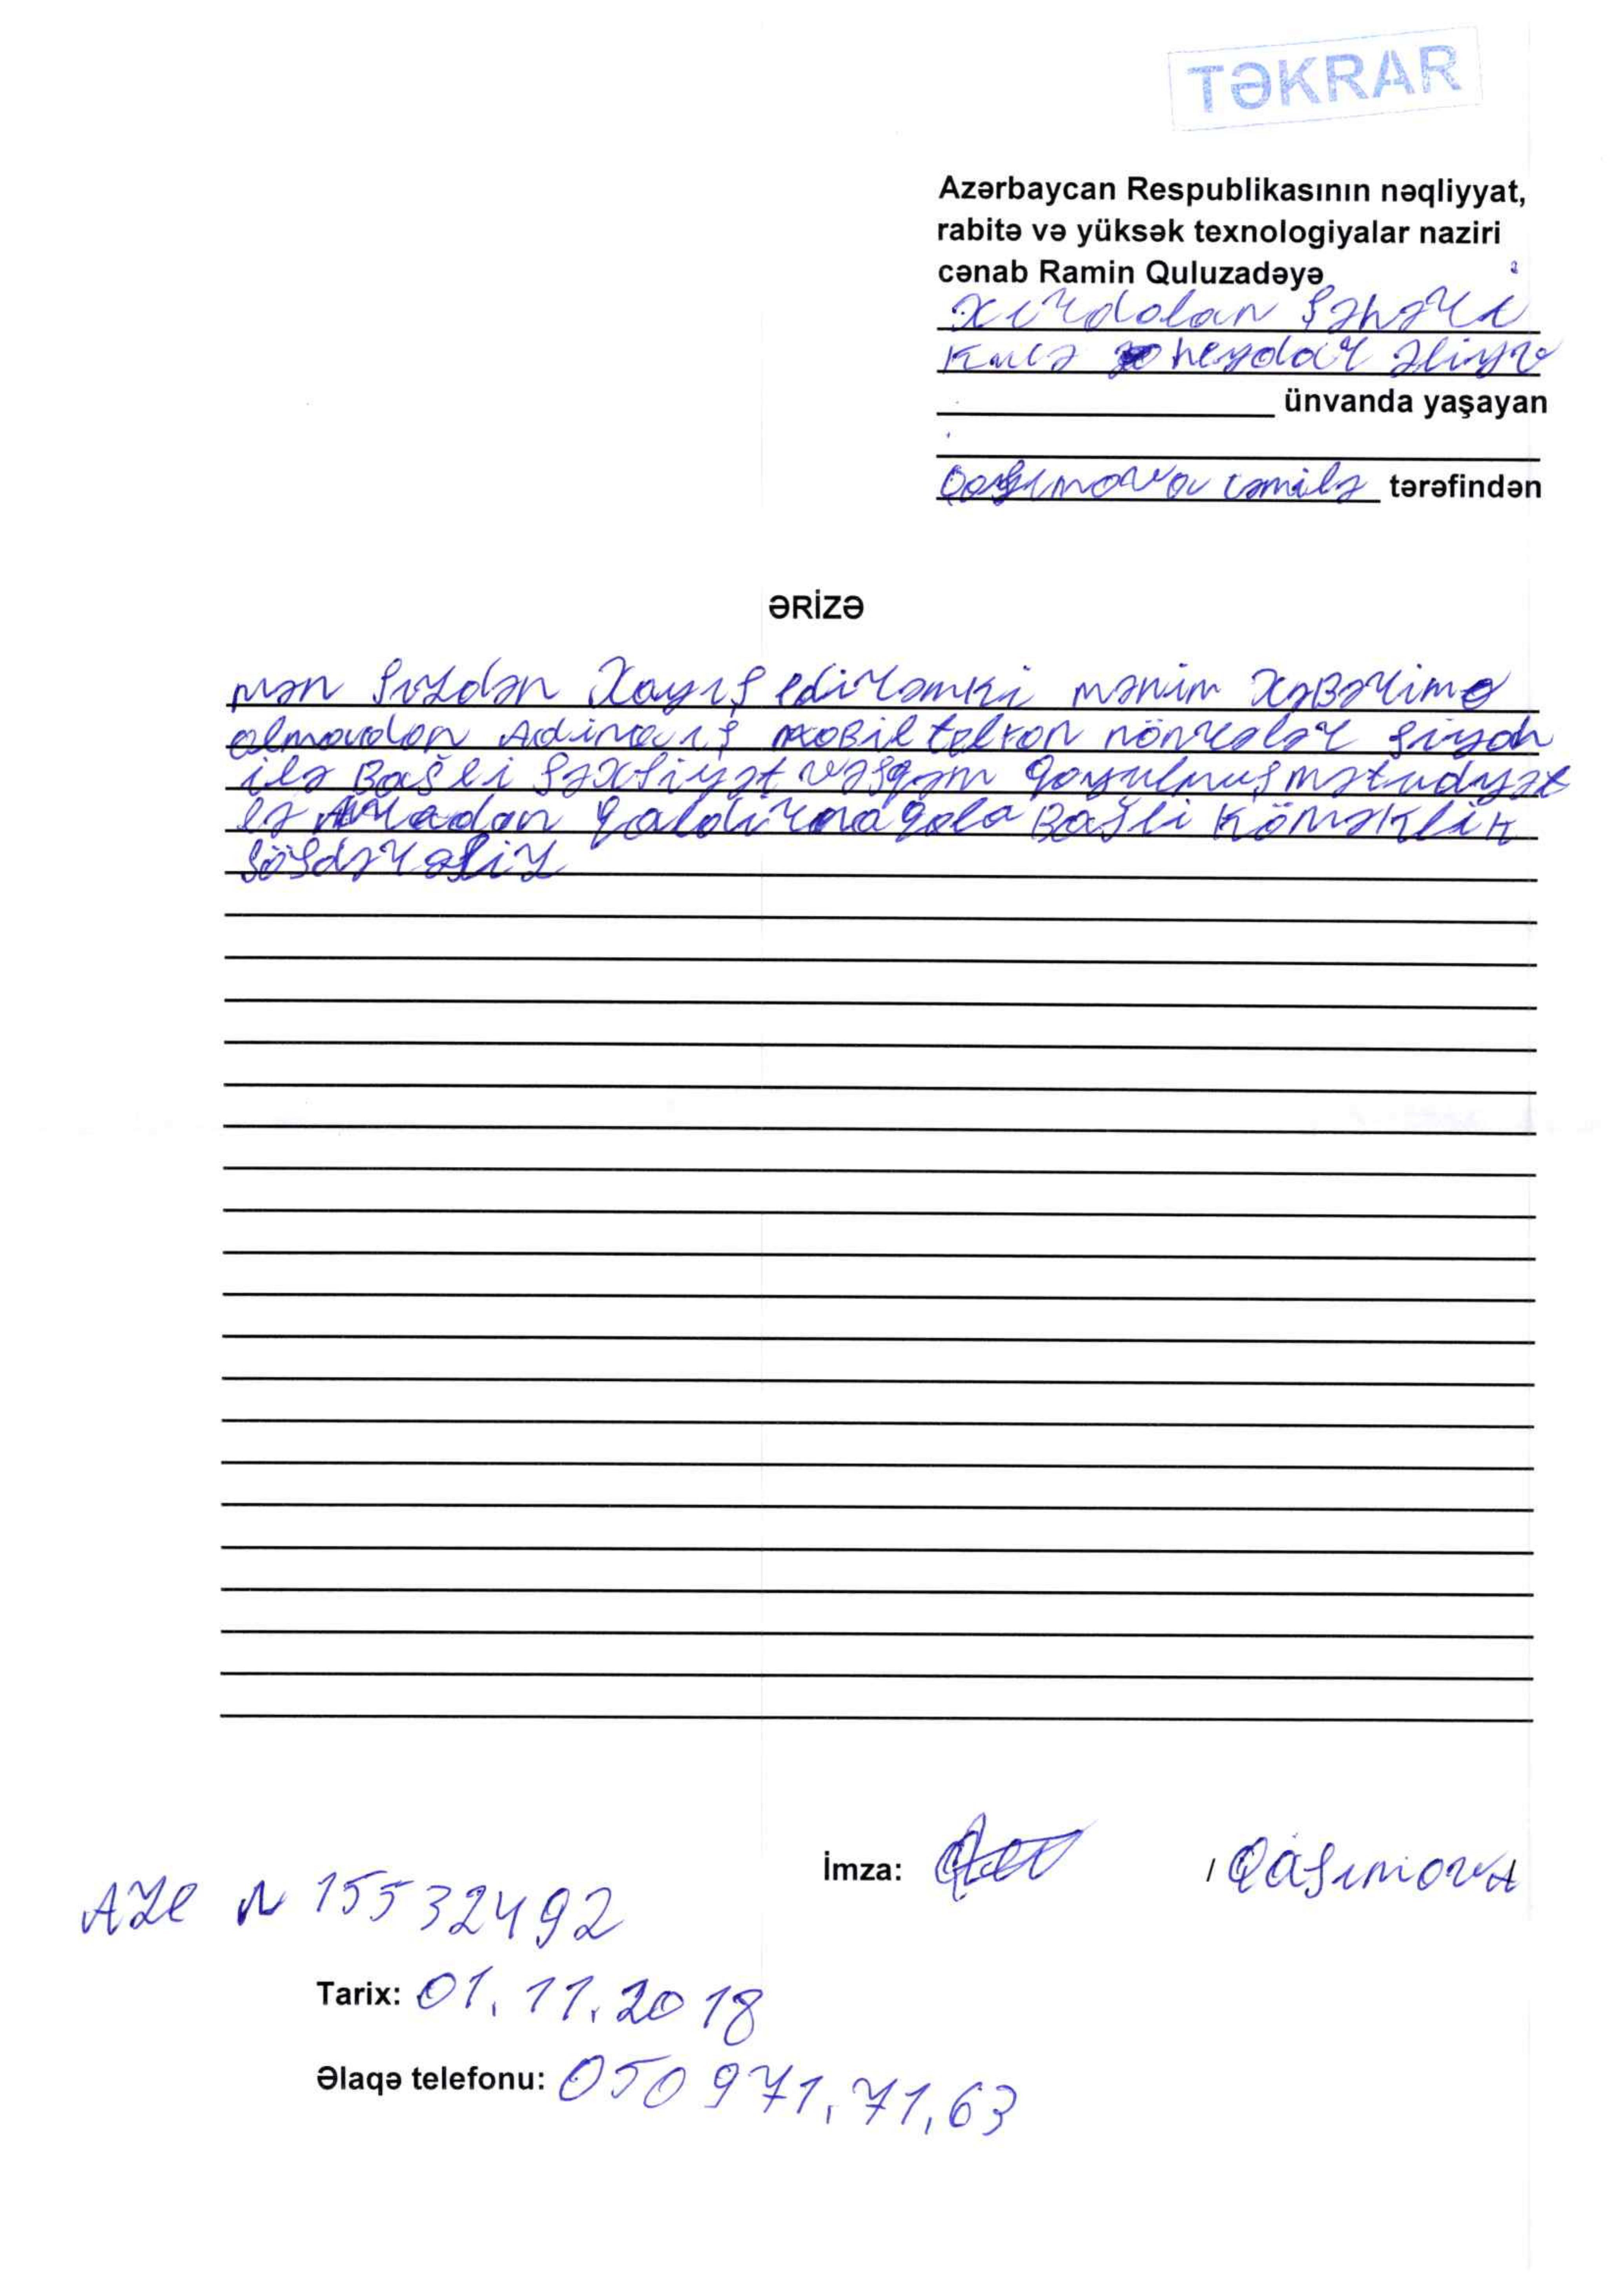 TƏKRAR
Azərbaycan Respublikasının nəqliyyat,
rabitə və yüksək texnologiyalar naziri
cənab Ramin Quluzadəyə
Xırdolan şəhəri
Kuçə heydar əliye
ünvanda yaşayan
Qasımova cəmilə tərəfindən
ƏRİZƏ
mən sizdən Xayış edirəmki mənim xəBərimə
olmadan Adıma mobil telfon nömrələr
ilə Bağli şəxsiyət vəsqəm qoyulmuş mətudiyət
lə Aradan qaldırmaqola Bağli Köməklik
İmza: / Qasımova
AZE N 15532492
Tarix: 01.11.2018
Əlaqə telefonu: 050 971,71,63